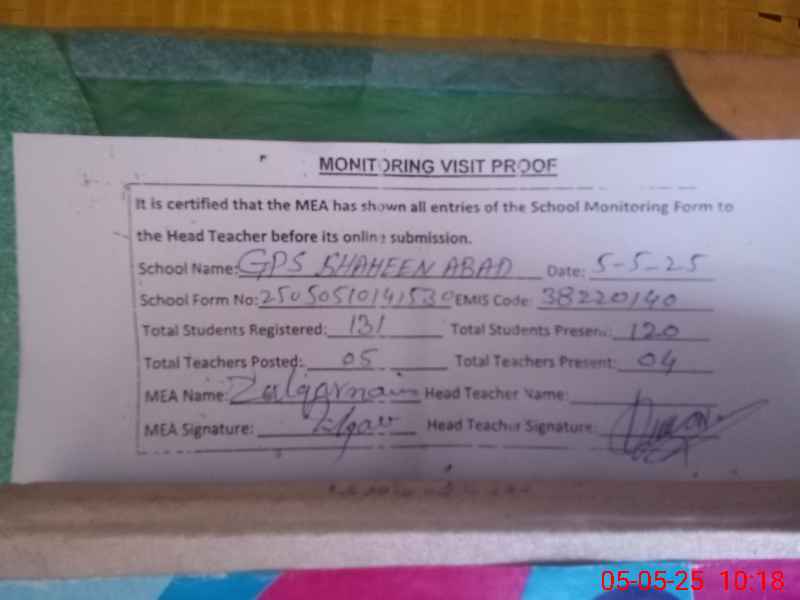 MONITORING VISIT PROOF
It is certified that the MEA has shown all entries of the School Monitoring Form to
the Head Teacher before its online submission.
School Name: GPS SHAHEEN ABAD Date: 5-5-25
School Form No: 25050510141530 EMIS Code: 38220140
Total Students Registered: 131 Total Students Present: 120
Total Teachers Posted: 05 Total Teachers Present: 04
MEA Name: Zulqarnain Head Teacher Name:
MEA Signature: Head Teacher Signature:
05-05-25 10:18